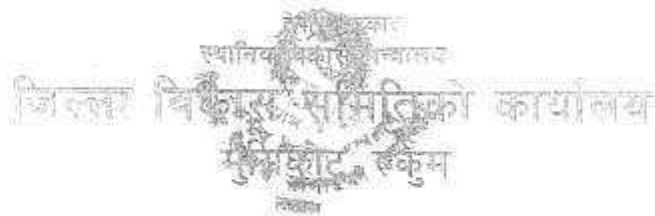 नेपाल सरकार
स्थानिय विकास मन्त्रालय
जिल्ला विकास समितिको कार्यालय
मुसिकोट, रुकुम